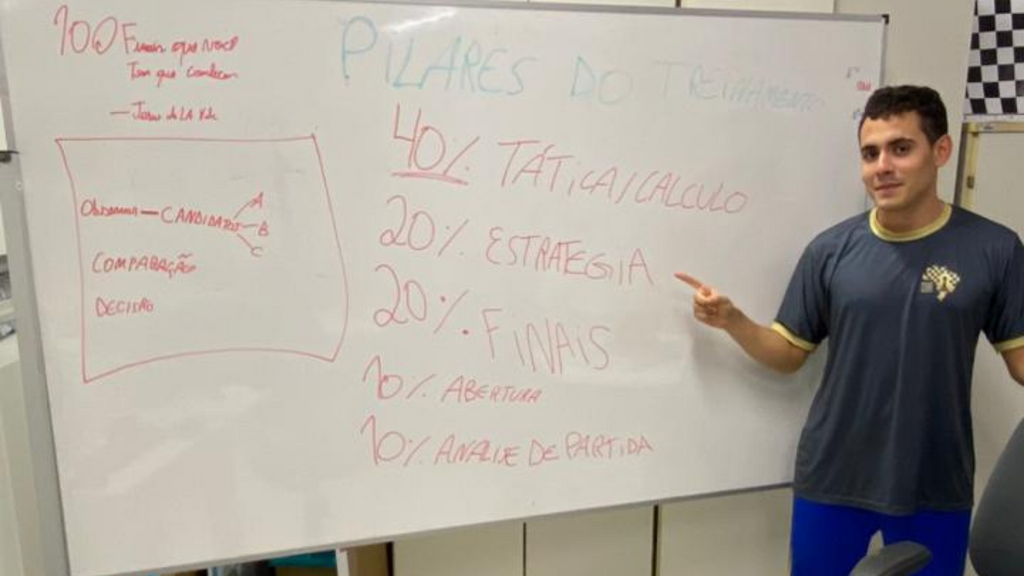 100 Finais que você
Tem que conhecer
— Jesus de LA Villa
Observar — CANDIDATOS A
B
C
COMPARAÇÃO
DECISÃO
PILARES DO TREINAMENTO
40% TÁTICA/CALCULO
20% ESTRATEGIA
20% FINAIS
10% ABERTURA
10% ANALISE DE PARTIDA